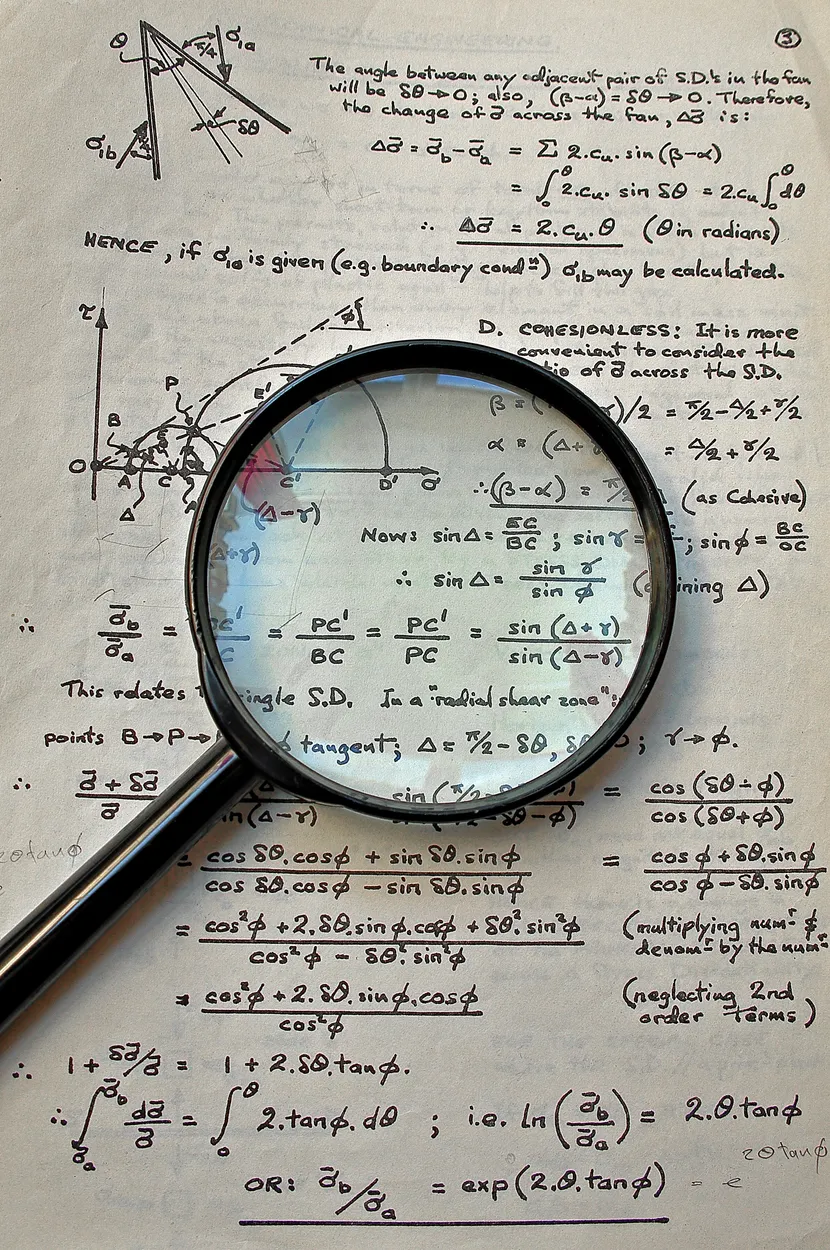 ③
θ π/4 σ₁ₐ
σ₁b δθ
The angle between any adjacent pair of S.D.'s in the fan
will be δθ→0; also, (β-α) = δθ → 0. Therefore,
the change of σ̄ across the fan, Δσ̄ is:
Δσ̄ = σ̄_b - σ̄_a = Σ 2.c_u. sin(β-α)
= ∫₀^θ 2.c_u. sin δθ = 2.c_u ∫₀^θ dθ
∴ Δσ̄ = 2.c_u.θ (θ in radians)
HENCE, if σ₁ₐ is given (e.g. boundary condⁿ) σ₁b may be calculated.
τ φ
D. COHESIONLESS: It is more
convenient to consider the
of σ̄ across the S.D.
P E'
B
O A C C' D' σ
Δ
β = )/2 = π/2 - Δ/2 + γ/2
α = (Δ+ = Δ/2 + γ/2
∴ (β-α) = π/2 (as Cohesive)
(Δ-γ)
Δ+γ)
Now: sin Δ = EC/BC ; sin γ = ; sin φ = BC/OC
∴ sin Δ = sin γ / sin φ ( ining Δ)
∴ σ̄_b/σ̄_a = C'/C = PC'/BC = PC'/PC = sin (Δ+γ)/sin (Δ-γ)
This relates single S.D. In a "radial shear zone":
points B→P→ & tangent; Δ = π/2 - δθ, δθ 0; γ→φ.
∴ (σ̄ + δσ̄)/σ̄ in(Δ-γ) sin(π/2 -δθ-φ) = cos (δθ-φ)/cos (δθ+φ)
= (cos δθ.cosφ + sin δθ.sinφ)/(cos δθ.cosφ - sin δθ.sinφ) = (cos φ + δθ.sinφ)/(cos φ - δθ.sinφ)
2θtanφ
= (cos²φ + 2.δθ.sinφ.cosφ + δθ².sin²φ)/(cos²φ - δθ².sin²φ) (multiplying numʳ &
denomʳ by the numʳ
= (cos²φ + 2.δθ.sinφ.cosφ)/cos²φ (neglecting 2nd
order terms)
∴ 1 + δσ̄/σ̄ = 1 + 2.δθ.tanφ.
∴ ∫_{σ̄_a}^{σ̄_b} dσ̄/σ̄ = ∫₀^θ 2.tanφ.dθ ; i.e. ln(σ̄_b/σ̄_a) = 2.θ.tanφ
OR: σ̄_b/σ̄_a = exp(2.θ.tanφ) = e^{2θtanφ}